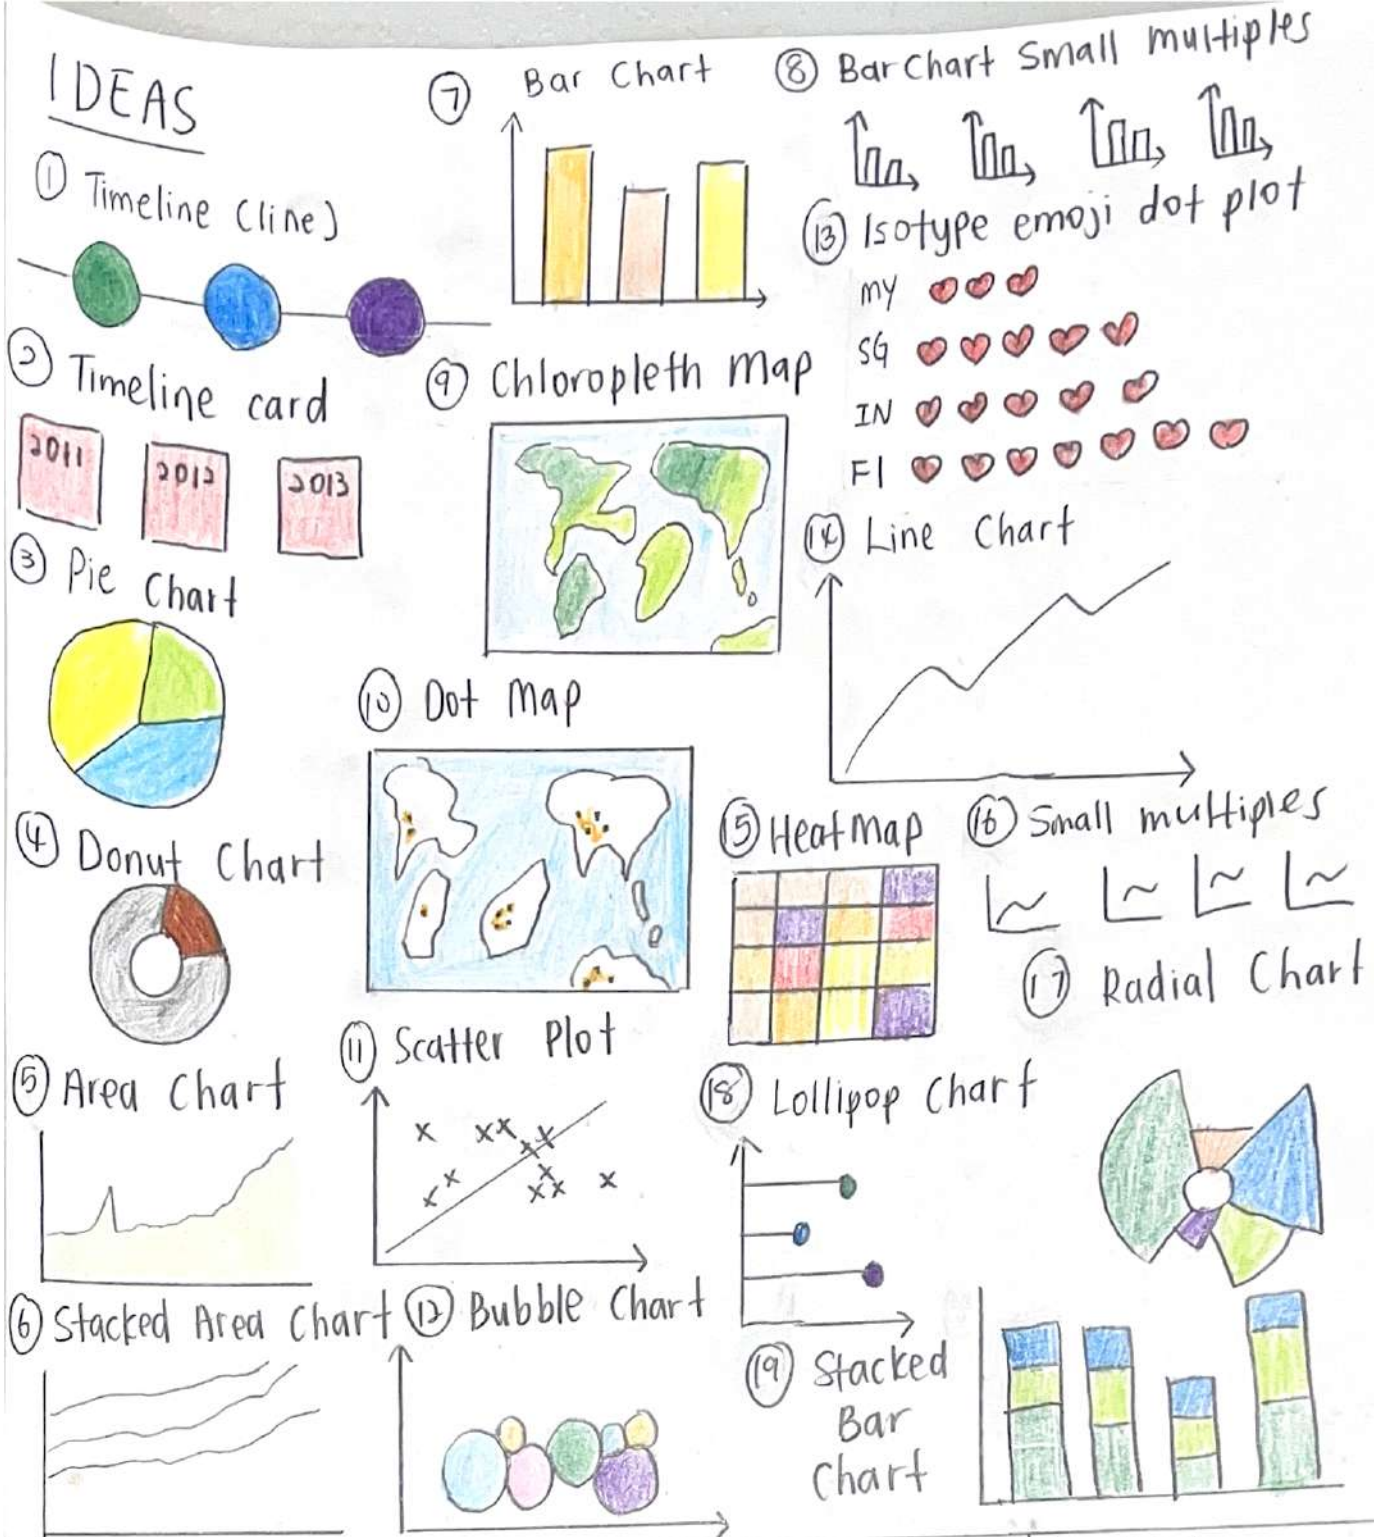 IDEAS
① Timeline (line)
② Timeline card
2011
2012
2013
③ Pie Chart
④ Donut Chart
⑤ Area Chart
⑥ Stacked Area Chart
⑦ Bar Chart
⑧ Bar Chart Small multiples
⑨ Chloropleth Map
⑩ Dot Map
⑪ Scatter Plot
⑫ Bubble Chart
⑬ Isotype emoji dot plot
MY
SG
IN
FI
⑭ Line Chart
⑮ Heatmap
⑯ Small multiples
⑰ Radial Chart
⑱ Lollipop Chart
⑲ Stacked
Bar
Chart